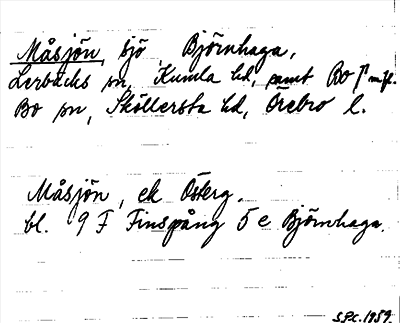 Måsjön, sjö, Björnhaga,
Lerbäcks sn, Kumla hd, samt Bo
Bo sn, Sköllersta hd, Örebro l.
Måsjön, ek Österg.
bl. 9 F Finspång 5 e Björnhaga.
S.P.C. 1959.